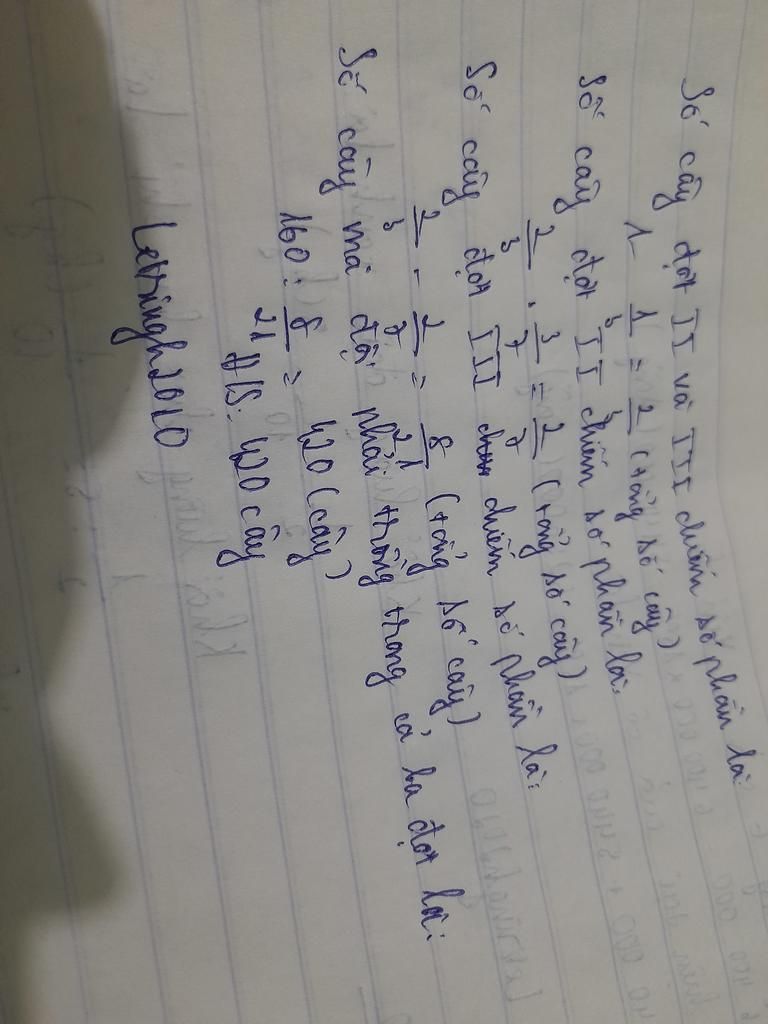 Số cây đợt II và III chiếm số phần là:
1 - 1/3 = 2/3 (tổng số cây)
Số cây đợt II chiếm số phần là:
2/3 . 3/7 = 2/7 (tổng số cây)
Số cây đợt III chiếm số phần là:
2/3 - 2/7 = 8/21 (tổng số cây)
Số cây mà đội phải trồng trong cả ba đợt là:
160 : 8/21 = 420 (cây)
Đ/S: 420 cây